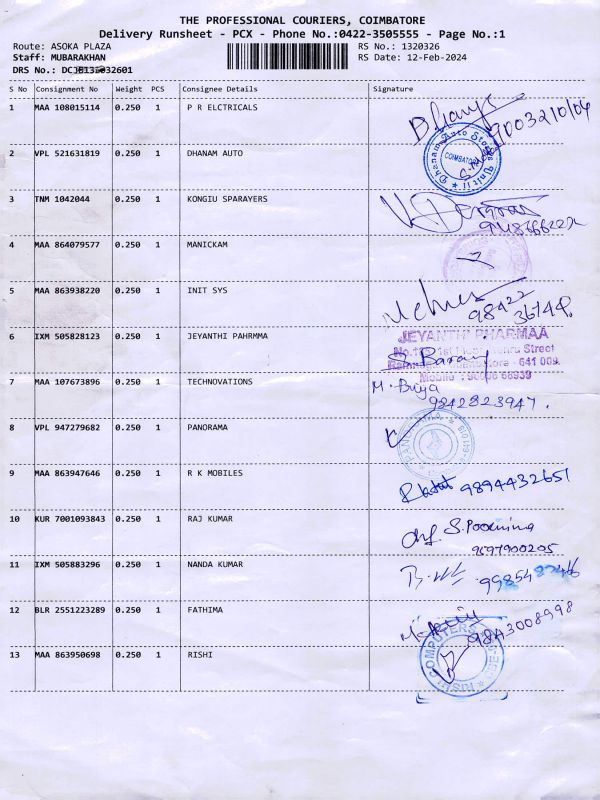 THE PROFESSIONAL COURIERS, COIMBATORE
Delivery Runsheet - PCX - Phone No.:0422-3505555 - Page No.:1
Route: ASOKA PLAZA
RS No.: 1320326
Staff: MUBARAKHAN
RS Date: 12-Feb-2024
DRS No.:
S No Consignment No Weight PCS Consignee Details Signature
1 MAA 108015114 0.250 1 P R ELCTRICALS
9003210104
2 VPL 521631819 0.250 1 DHANAM AUTO
Dhanam Auto Stores
COIMBATORE
3 TNM 1042044 0.250 1 KONGIU SPARAYERS
4 MAA 864079577 0.250 1 MANICKAM
5 MAA 863938220 0.250 1 INIT SYS
98422
36748
6 IXM 505828123 0.250 1 JEYANTHI PAHRMMA
JEYANTHI PHARMAA
Street
641 009.
Mobile :
7 MAA 107673896 0.250 1 TECHNOVATIONS
M. Buya
9842823947.
8 VPL 947279682 0.250 1 PANORAMA
9 MAA 863947646 0.250 1 R K MOBILES
9894432651
10 KUR 7001093843 0.250 1 RAJ KUMAR
S. Poornima
9597900205
11 IXM 505883296 0.250 1 NANDA KUMAR
12 BLR 2551223289 0.250 1 FATHIMA
9843008998
13 MAA 863950698 0.250 1 RISHI
RISHI COMPUTERS